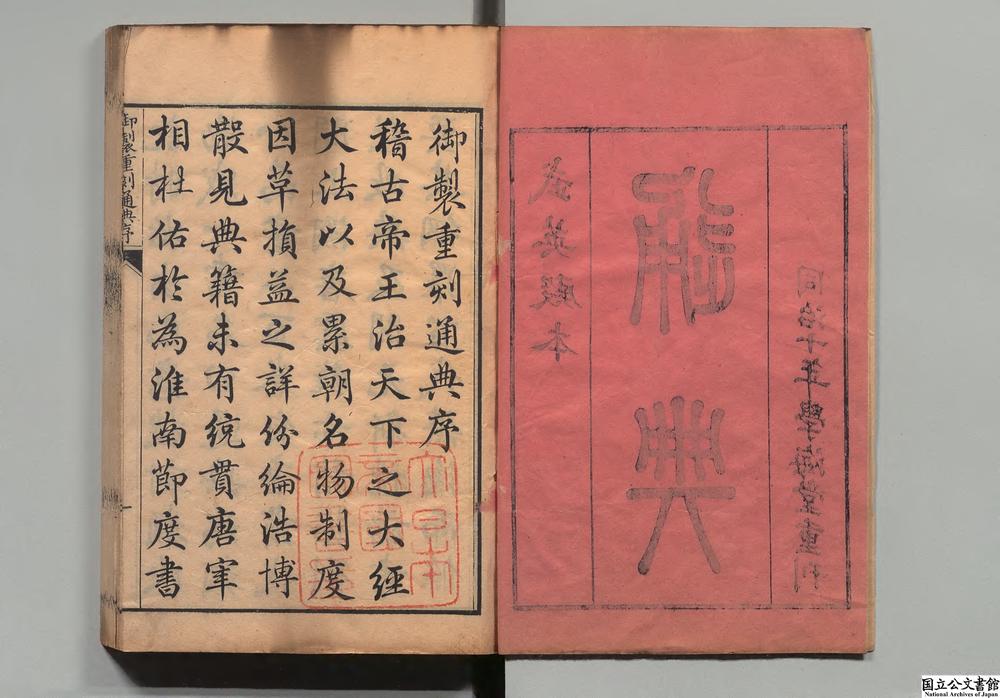 武英殿本
通典
同治十年學海堂重刊
御製重刻通典序
稽古帝王治天下之大經
大法以及累朝名物制度
因革損益之詳紛綸浩博
散見典籍未有統貫唐宰
相杜佑於為淮南節度書
御製重刻通典序
一
国立公文書館
National Archives of Japan